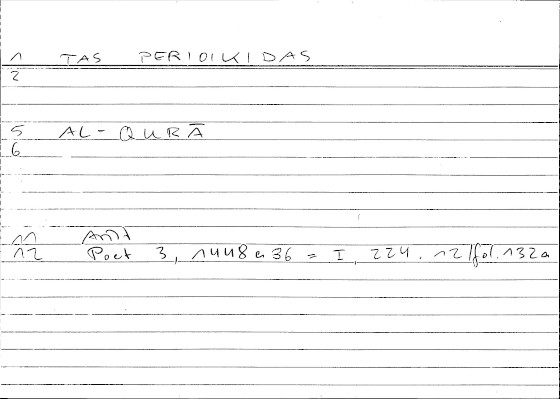 1 TAS PERIOIKIDAS
2
5 AL-QURĀ
6
11 Arist
12 Poet 3, 1448a36 = I, 224.12/fol.132a